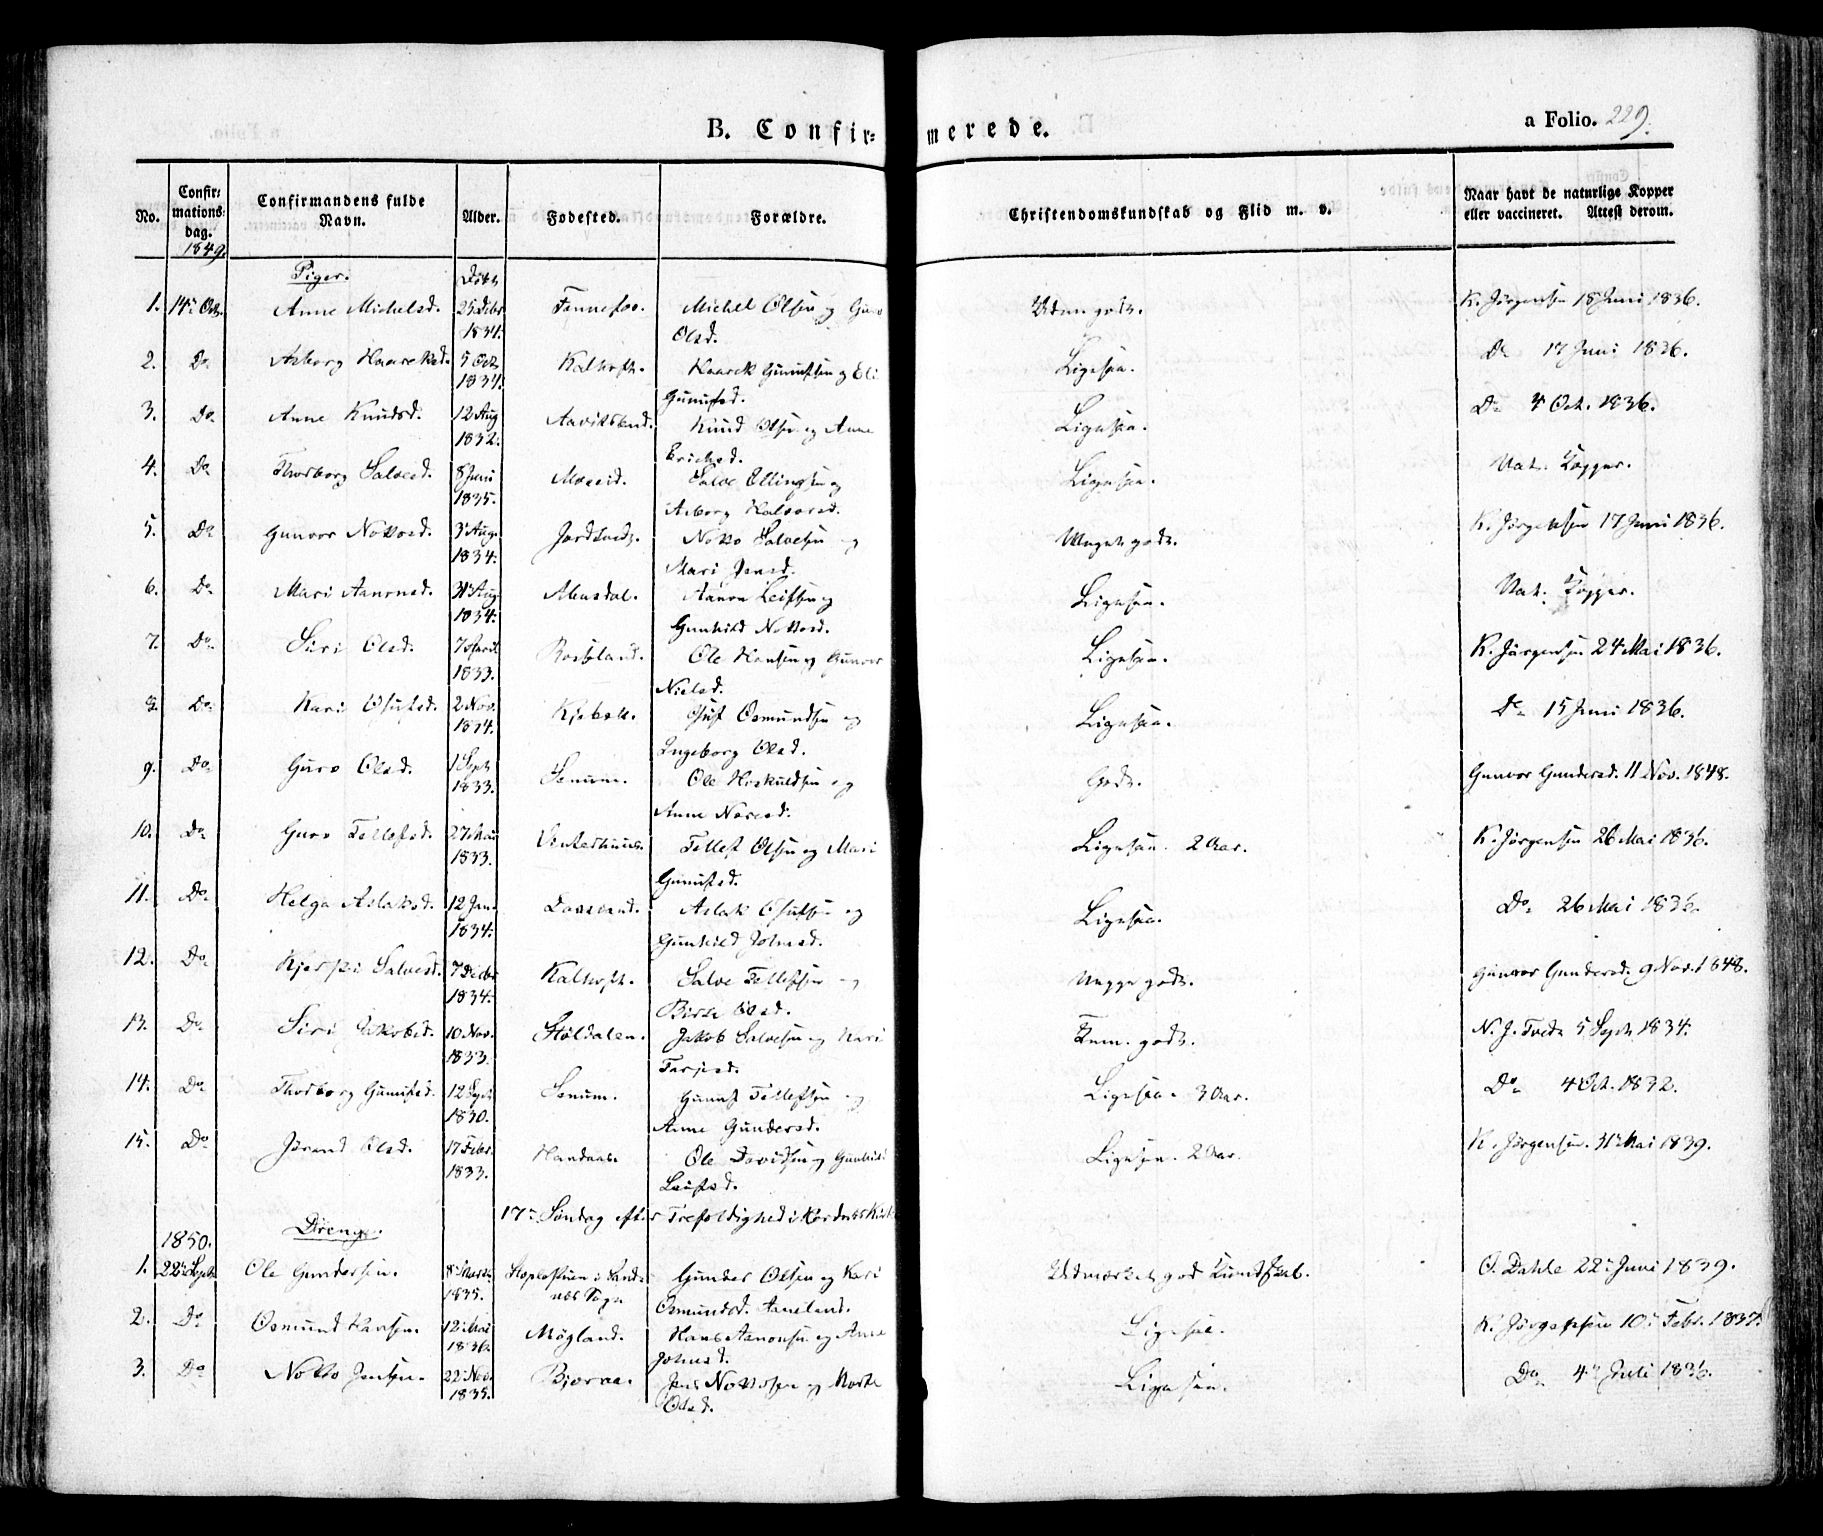 B. Confirmerede.
a Folio. 229.
No.
Confirmations-dag.
Confirmandens fulde Navn.
Alder.
Fødested.
Forældre.
Christendomskundskab og Flid m. v.
Naar havt de naturlige Kopper eller vaccineret. Attest derom.
1849.
Piger.
1. 14de Oct. Anne Michelsd. 25 Febr. Fennefos. Michel Olsen og Guro Udm. godt. K. Jørgensen 18 Juni 1836.
1834. Olsd.
2. Do Asborg Haareksd. 5 Oct. Haarek Gunufsen og Eli Ligesaa. Do 17 Juni 1836.
1834. Gunufsd.
3. Do Anne Knudsd. 12 Aug Aaviksland. Knud Olsen og Anne Ligesaa. Do 4 Oct. 1836.
1832. Erichsd.
4. Do Thorborg Salvesd. 8 Juni Moseid. Salve Ellingsen og Ligesaa. Nat. Kopper.
1835. Asborg Halvorsd.
5. Do Gunvor Nottosd. 3 Aug. Notto Salvesen og Meget godt. K. Jørgensen 17 Juni 1836.
1834. Mari Jensd.
6. Do Mari Aanonsd. 31 Aug. Abusdal. Aanon Leifsen og Ligesaa. Nat. Kopper.
1834. Gunhild Nottosd.
7. Do Siri Olsd. 7 Rosseland. Ole Hansen og Gunvor Ligesaa. K. Jørgensen 24 Mai 1836.
1833. Nielsd.
8. Do Kari Osufsd. 2 Nov. Osuf Osmundsen og Ligesaa. Do 15 Juni 1836.
1834. Ingeborg Olsd.
9. Do Guro Olsd. 1 Sept. Senum. Ole Hoskuldsen og Godt. Gunvor Gundersd. 11 Nov. 1848.
1833. Anne
10. Do Guro Tellefsd. 27 Mai Vinterhuus. Tellef Olsen og Mari Ligesaa. 2 Aar. K. Jørgensen 26 Mai 1836.
1833. Gunufsd.
11. Do Helga Aslaksd. 12 Jan. Aslak Osufsen og Ligesaa. Do 26 Mai 1836.
1834. Gunhild Johnsd.
12. Do Salvesd. 7 Decbr. Salve Tellefsen og Meget godt. Gunvor Gundersd. 9 Nov. 1848.
1834. Olsd.
13. Do Siri Jakobsd. 10 Nov. Støldalen. Jakob Salvesen og Kari Tem. godt. N. J. Tveit 5 Sept. 1834.
1833. Tarjesd.
14. Do Thorborg Gunufsd. 12 Sept. Senum. Gunuf Tellefsen og Ligesaa. 3 Aar. Do 4 Oct. 1832.
1830. Anne Gundersd.
15. Do Jorand Olsd. 17 Febr. Handaas. Ole Davidsen og Gunhild Ligesaa. 2 Aar. K. Jørgensen. 31 Mai 1839.
1833.
17de Søndag efter Trefoldighed i Kirke
1850. Drenge.
1. 22de Sept. Ole Gundersen. 8 Marts i Sand- Gunder Olsen og Kari Udmærket god Kundskab. O. Dahle 22de Juni 1839.
1835. nes Sogn Osmundsd. Aaneland.
2. Do Osmund Hansen. 12 Mai Mögland. Hans Aanonsen og Anne Ligesaa. K. Jørgensen 10de Febr. 1837.
1836. Johnsd.
3. Do Notto Jensen. 22 Nov. Bjoraa. Jens Nottosen og Marte Ligesaa. Do 4de Juli 1836.
1835. Olsd.